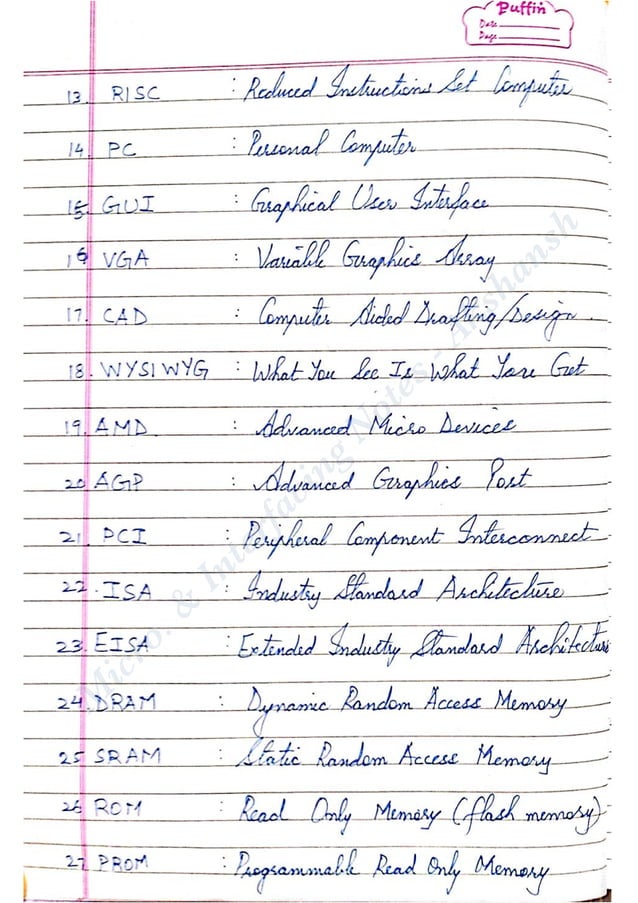 Puffin
Date
Page
13. RISC : Reduced Instructions Set Computer
14. PC : Personal Computer
15. GUI : Graphical User Interface
16 VGA : Variable Graphics Array
17. CAD : Computer Aided Drafting/Design.
18. WYSIWYG : What You See Is What You Get
19. AMD : Advanced Micro Devices
20 AGP : Advanced Graphics Port
21. PCI : Peripheral Component Interconnect
22. ISA : Industry Standard Architecture
23. EISA : Extended Industry Standard Architecture
24. DRAM : Dynamic Random Access Memory
25 SRAM : Static Random Access Memory
26 ROM : Read Only Memory (flash memory)
27 PROM : Programmable Read Only Memory
Micro. & Interfacing Notes - Anshansh